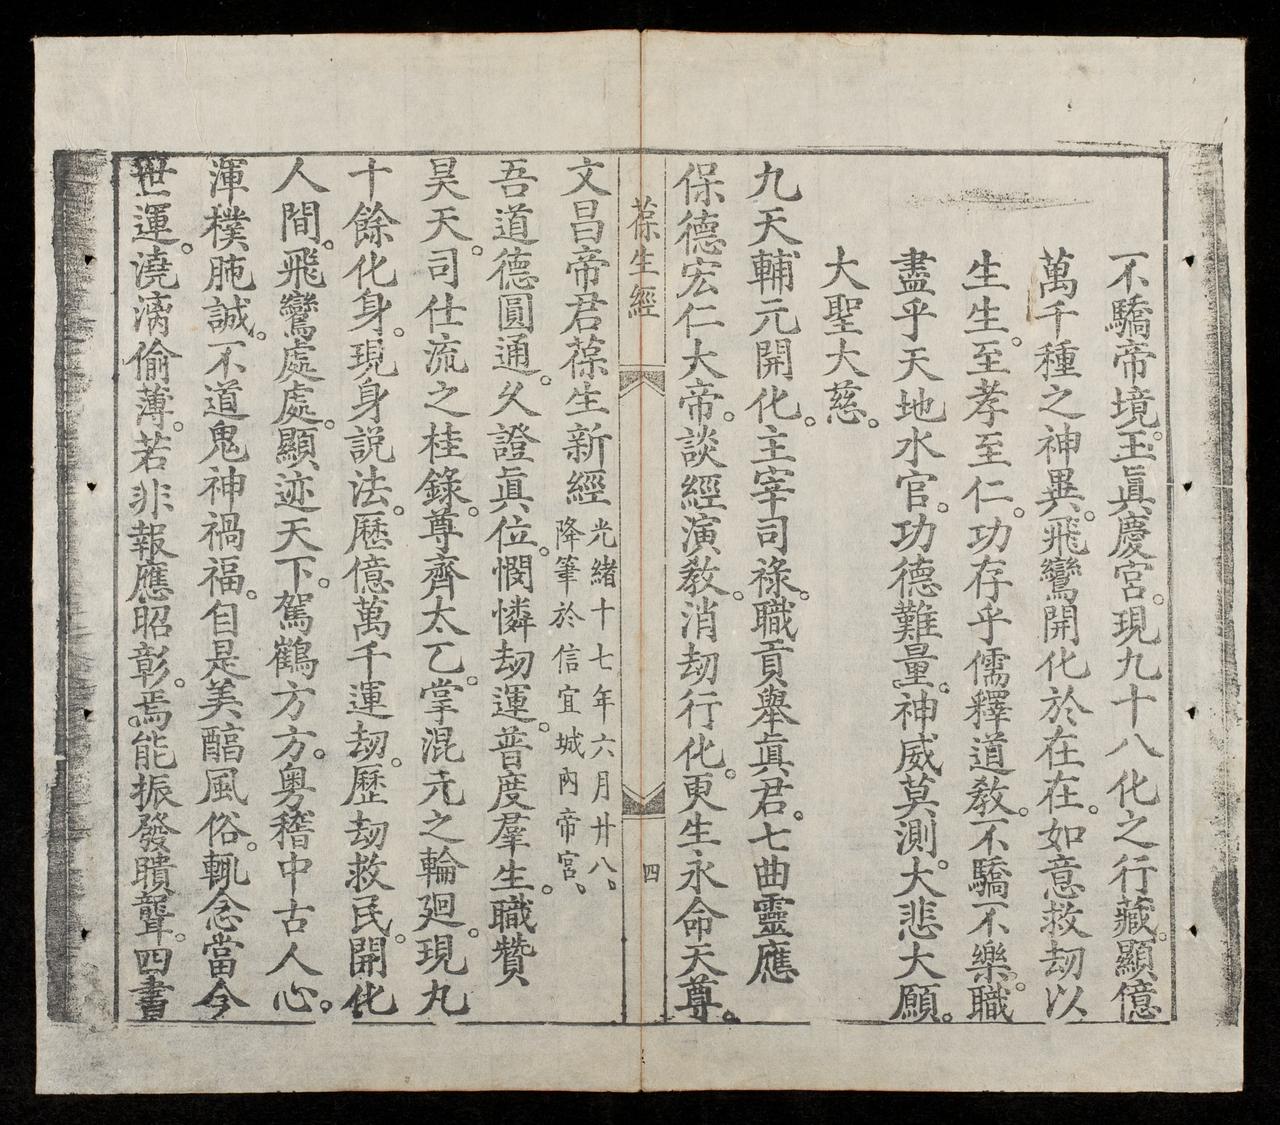 不驕帝境。玉眞慶宮。現九十八化之行藏。顯億
萬千種之神異。飛鸞開化於在在。如意救劫以
生生。至孝至仁。功存乎儒釋道教。不驕不樂。職
盡乎天地水官。功德難量。神威莫測。大悲大願。
大聖大慈。
九天輔元開化。主宰司祿。職貢舉眞君。七曲靈應
保德宏仁大帝。談經演教。消劫行化。更生永命天尊。
葆生經
四
文昌帝君葆生新經
光緒十七年六月廿八、
降筆於信宜城內帝宮、
吾道德圓通。久證眞位。憫憐劫運。普度羣生。職贊
昊天。司仕流之桂錄。尊齊太乙。掌混元之輪廻。現九
十餘化身。現身說法。歷億萬千運劫。歷劫救民。開化
人間。飛鸞處處。顯迹天下。駕鶴方方。粵稽中古人心。
渾樸肫誠。不道鬼神禍福。自是美醹風俗。輒念當今
世運。澆漓偷薄。若非報應昭彰。焉能振發聵聾。四書